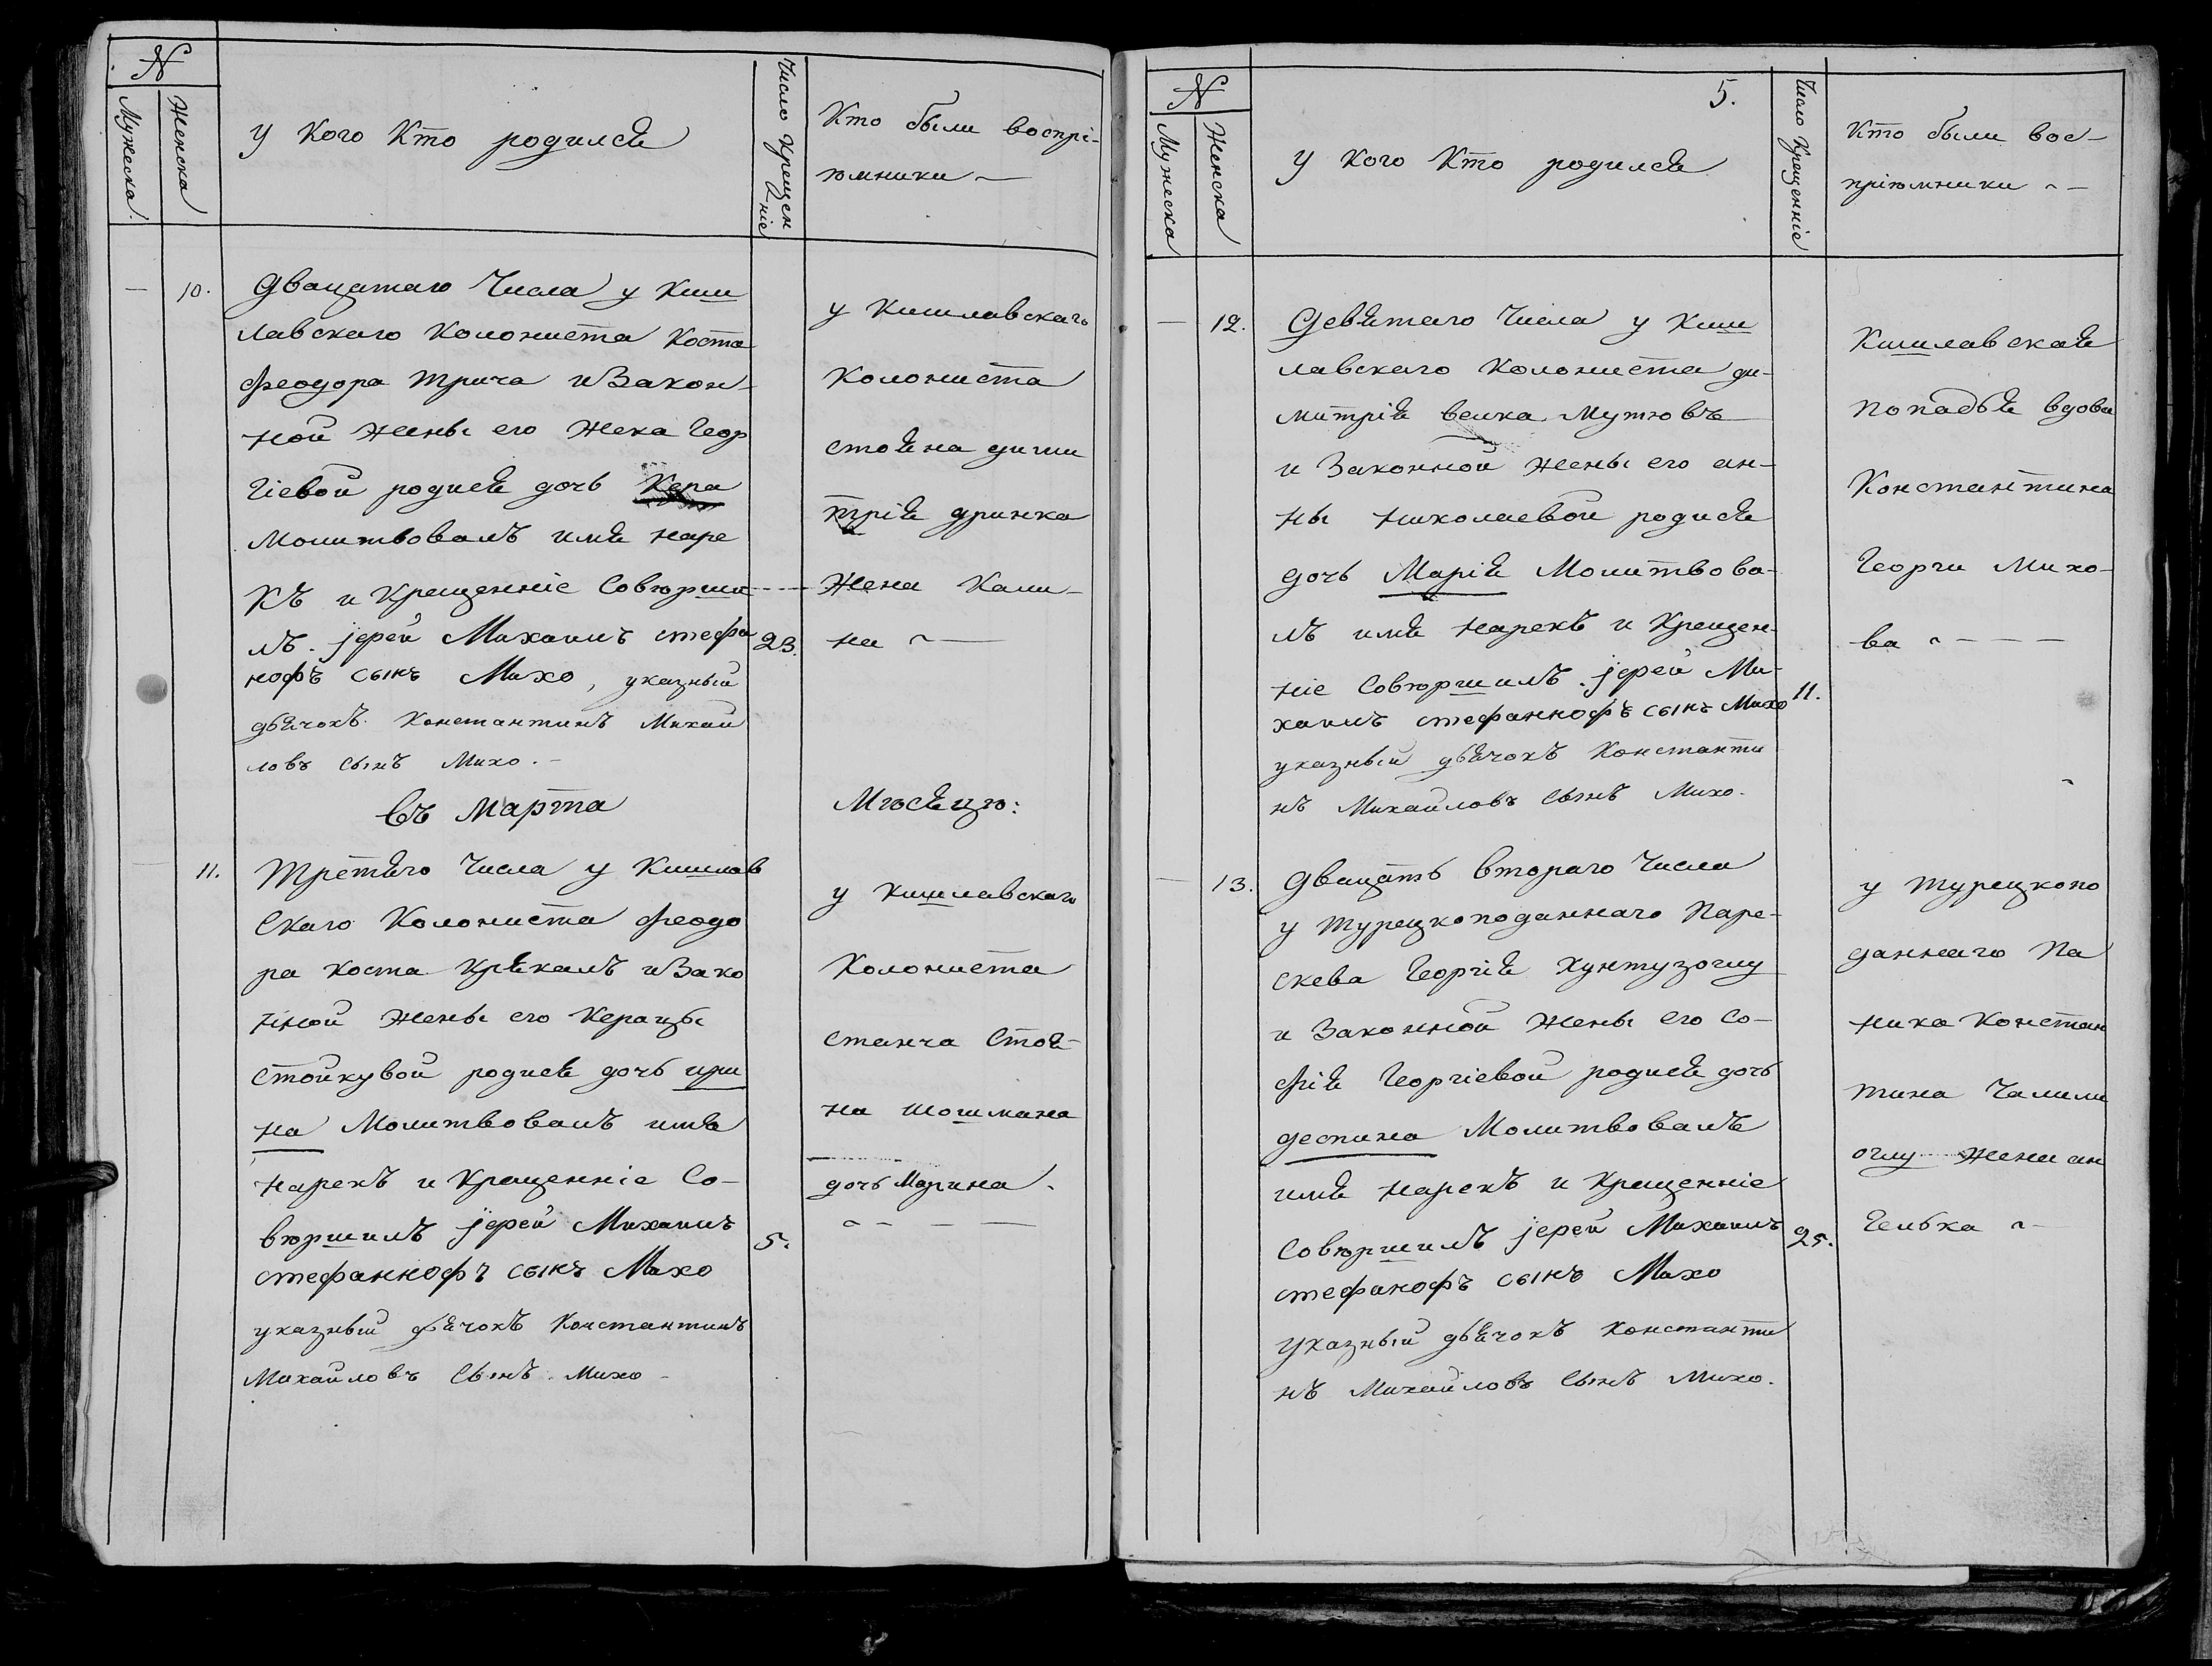 N
Мужеска
Женска
у Кого Кто родился
Число Крещен
ніе
Кто были воспрі-
юмники
10.
Двацатаго Числа у Киш
лавскаго Колониста Коста
Феодора Трича и Закон-
ной жены его Жека Геор
гіевой родися дочь Кера
Молитвовалъ имя наре
къ и Крещенніе Совюрши
лъ. јерей Михаилъ стефа
нофъ сынъ Михо, указный
дьячокъ Константинъ Михаи
ловъ сынъ Михо.
23.
у Кишлавскаго
Колониста
стояна дими
трія дринка
Жена Кали-
на
въ Марта
Мюсяцю:
11.
Третяго Числа у Кишлав
Скаго Колониста Феодо
ра Коста Крякалъ и Зако
нной жены его Керацы
Стойкувой родися дочь ири
на Молитвовалъ имя
нарекъ и Крещенніе Со-
вюршилъ јерей Михаилъ
стефаннофъ сынъ Михо
указный дьячокъ Константинъ
Михаиловъ Сынъ Михо
5.
у Кишлавскаго
Колониста
станча Стоя-
на шошмана
дочь Марина.
N
Мужеска
Женска
5.
у Кого Кто родился
Число Крещенніе
Кто были вос-
пріюмники
12.
Девятаго Числа у Киш
лавскаго Колониста ди-
митрія велка Мутювъ
и Законной жены его ан-
ны николаевой родися
дочь Марія Молитвова-
лъ имя нарекъ и Крещен-
ніе Совюршилъ јерей Ми-
хаилъ стефаннофъ сынъ Михо
указный дьячокъ Константи
нъ Михаиловъ Сынъ Михо.
11.
Кишлавская
попадья вдова
Константина
Георги Михо-
ва
13.
Двацать втораго Числа
у Турецкоподаннаго Паре-
скева Георгія Хунтузоглу
и Законной жены его Со-
фія Георгіевой родися дочь
деспина Молитвовалъ
имя нарекъ и Крещенніе
Совюршилъ јерей Михаилъ
стефанофъ сынъ Михо
указный дьячокъ Константи
нъ Михаиловъ Сынъ Михо.
25.
у Турецкопо
даннаго Па
ника Констан
тина Чалили
оглу Жена ан
гелька